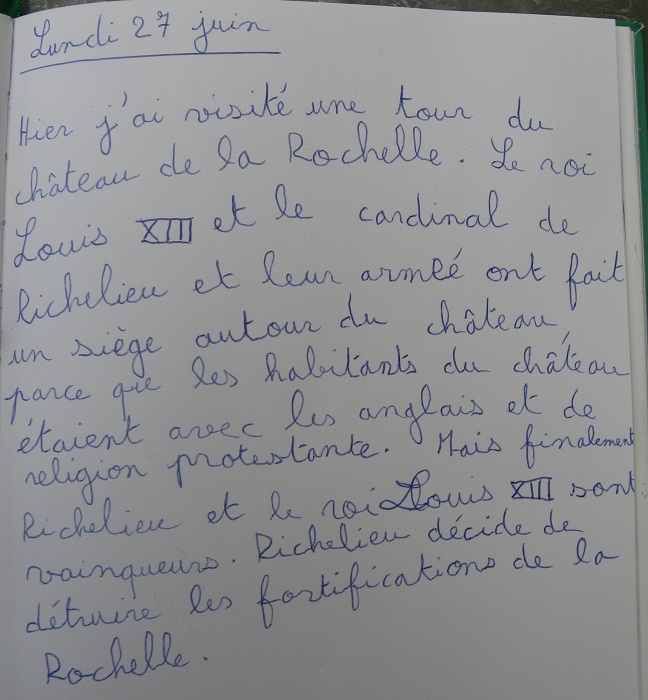 Lundi 27 juin
Hier j'ai visité une tour du
château de la Rochelle. Le roi
Louis XIII et le cardinal de
Richelieu et leur armée ont fait
un siège autour du château,
parce que les habitants du château
étaient avec les anglais et de
religion protestante. Mais finalement
Richelieu et le roi Louis XIII sont
vainqueurs. Richelieu décide de
détruire les fortifications de la
Rochelle.